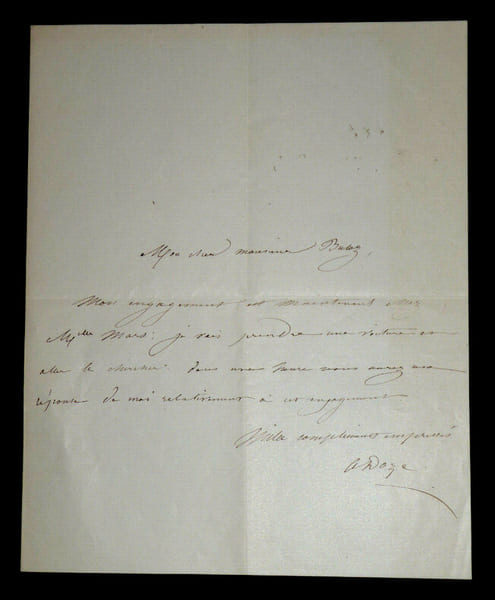 Mon cher monsieur Buloz,
Mon engagement est maintenant chez
Mlle Mars: je vais prendre une voiture et
aller le chercher. Dans une heure vous aurez une
réponse de moi relativement à cet engagement
Mille compliments empressés
A Doze